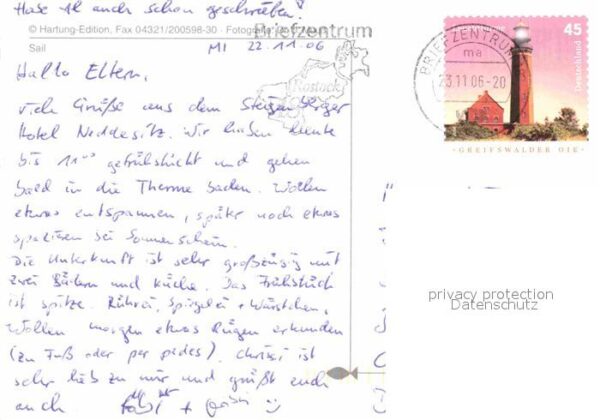 Hase hat auch schon geschrieben!
© Hartung-Edition, Fax 04321/200598-30 · Fotografie:
Briefzentrum
Sail
MI 22.11.06
Rostock
Hallo Eltern,
viele Grüße aus dem Steigenberger
Hotel Neddesitz. Wir haben heute
bis 11°° gefrühstückt und gehen
bald in die Therme baden. Wollen
etwas entspannen, später noch etwas
spazieren bei Sonnenschein.
Die Unterkunft ist sehr großzügig mit
zwei Bädern und Küche. Das Frühstück
ist spitze. Rührei, Spiegelei + Würstchen.
Wollen morgen etwas Rügen erkunden
(zu Fuß oder per pedes). Chrissi ist
sehr lieb zu mir und grüßt euch
auch.
BRIEFZENTRUM
ma
23.11.06-20
45
Deutschland
· GREIFSWALDER OIE ·
privacy protection
Datenschutz